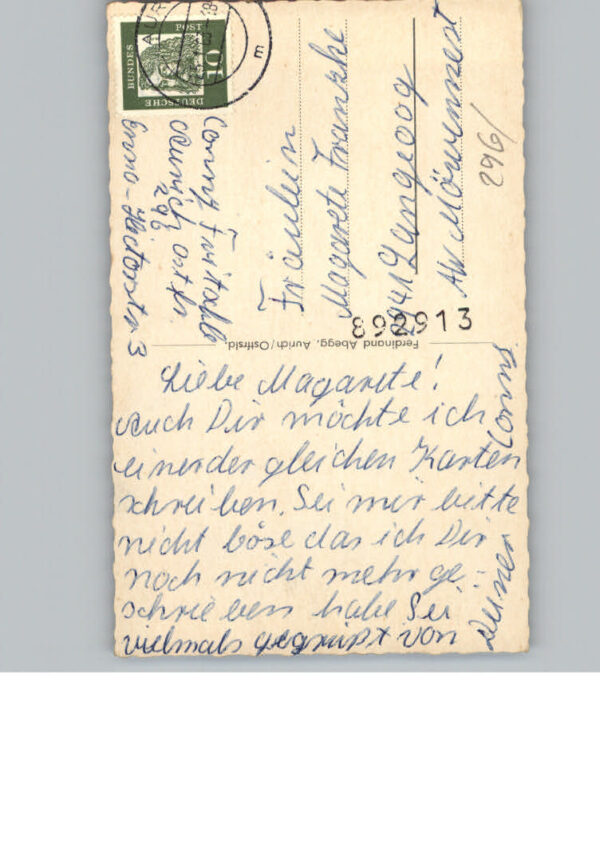 Liebe Magarete!
Auch Dir möchte ich
einer der gleichen Karten
schreiben. Sei mir bitte
nicht böse das ich Dir
noch nicht mehr ge-
schrieben habe Sei
vielmals gegrüßt von
Deiner Conny
Fräulein
Magarete Franzke
2941 Langeoog
AW Möwennest
296/
892913
Ferdinand Abegg, Aurich/Ostfrsld.
Conny
Aurich Ostfr.
296
3
DEUTSCHE
BUNDES
POST
10
AUR